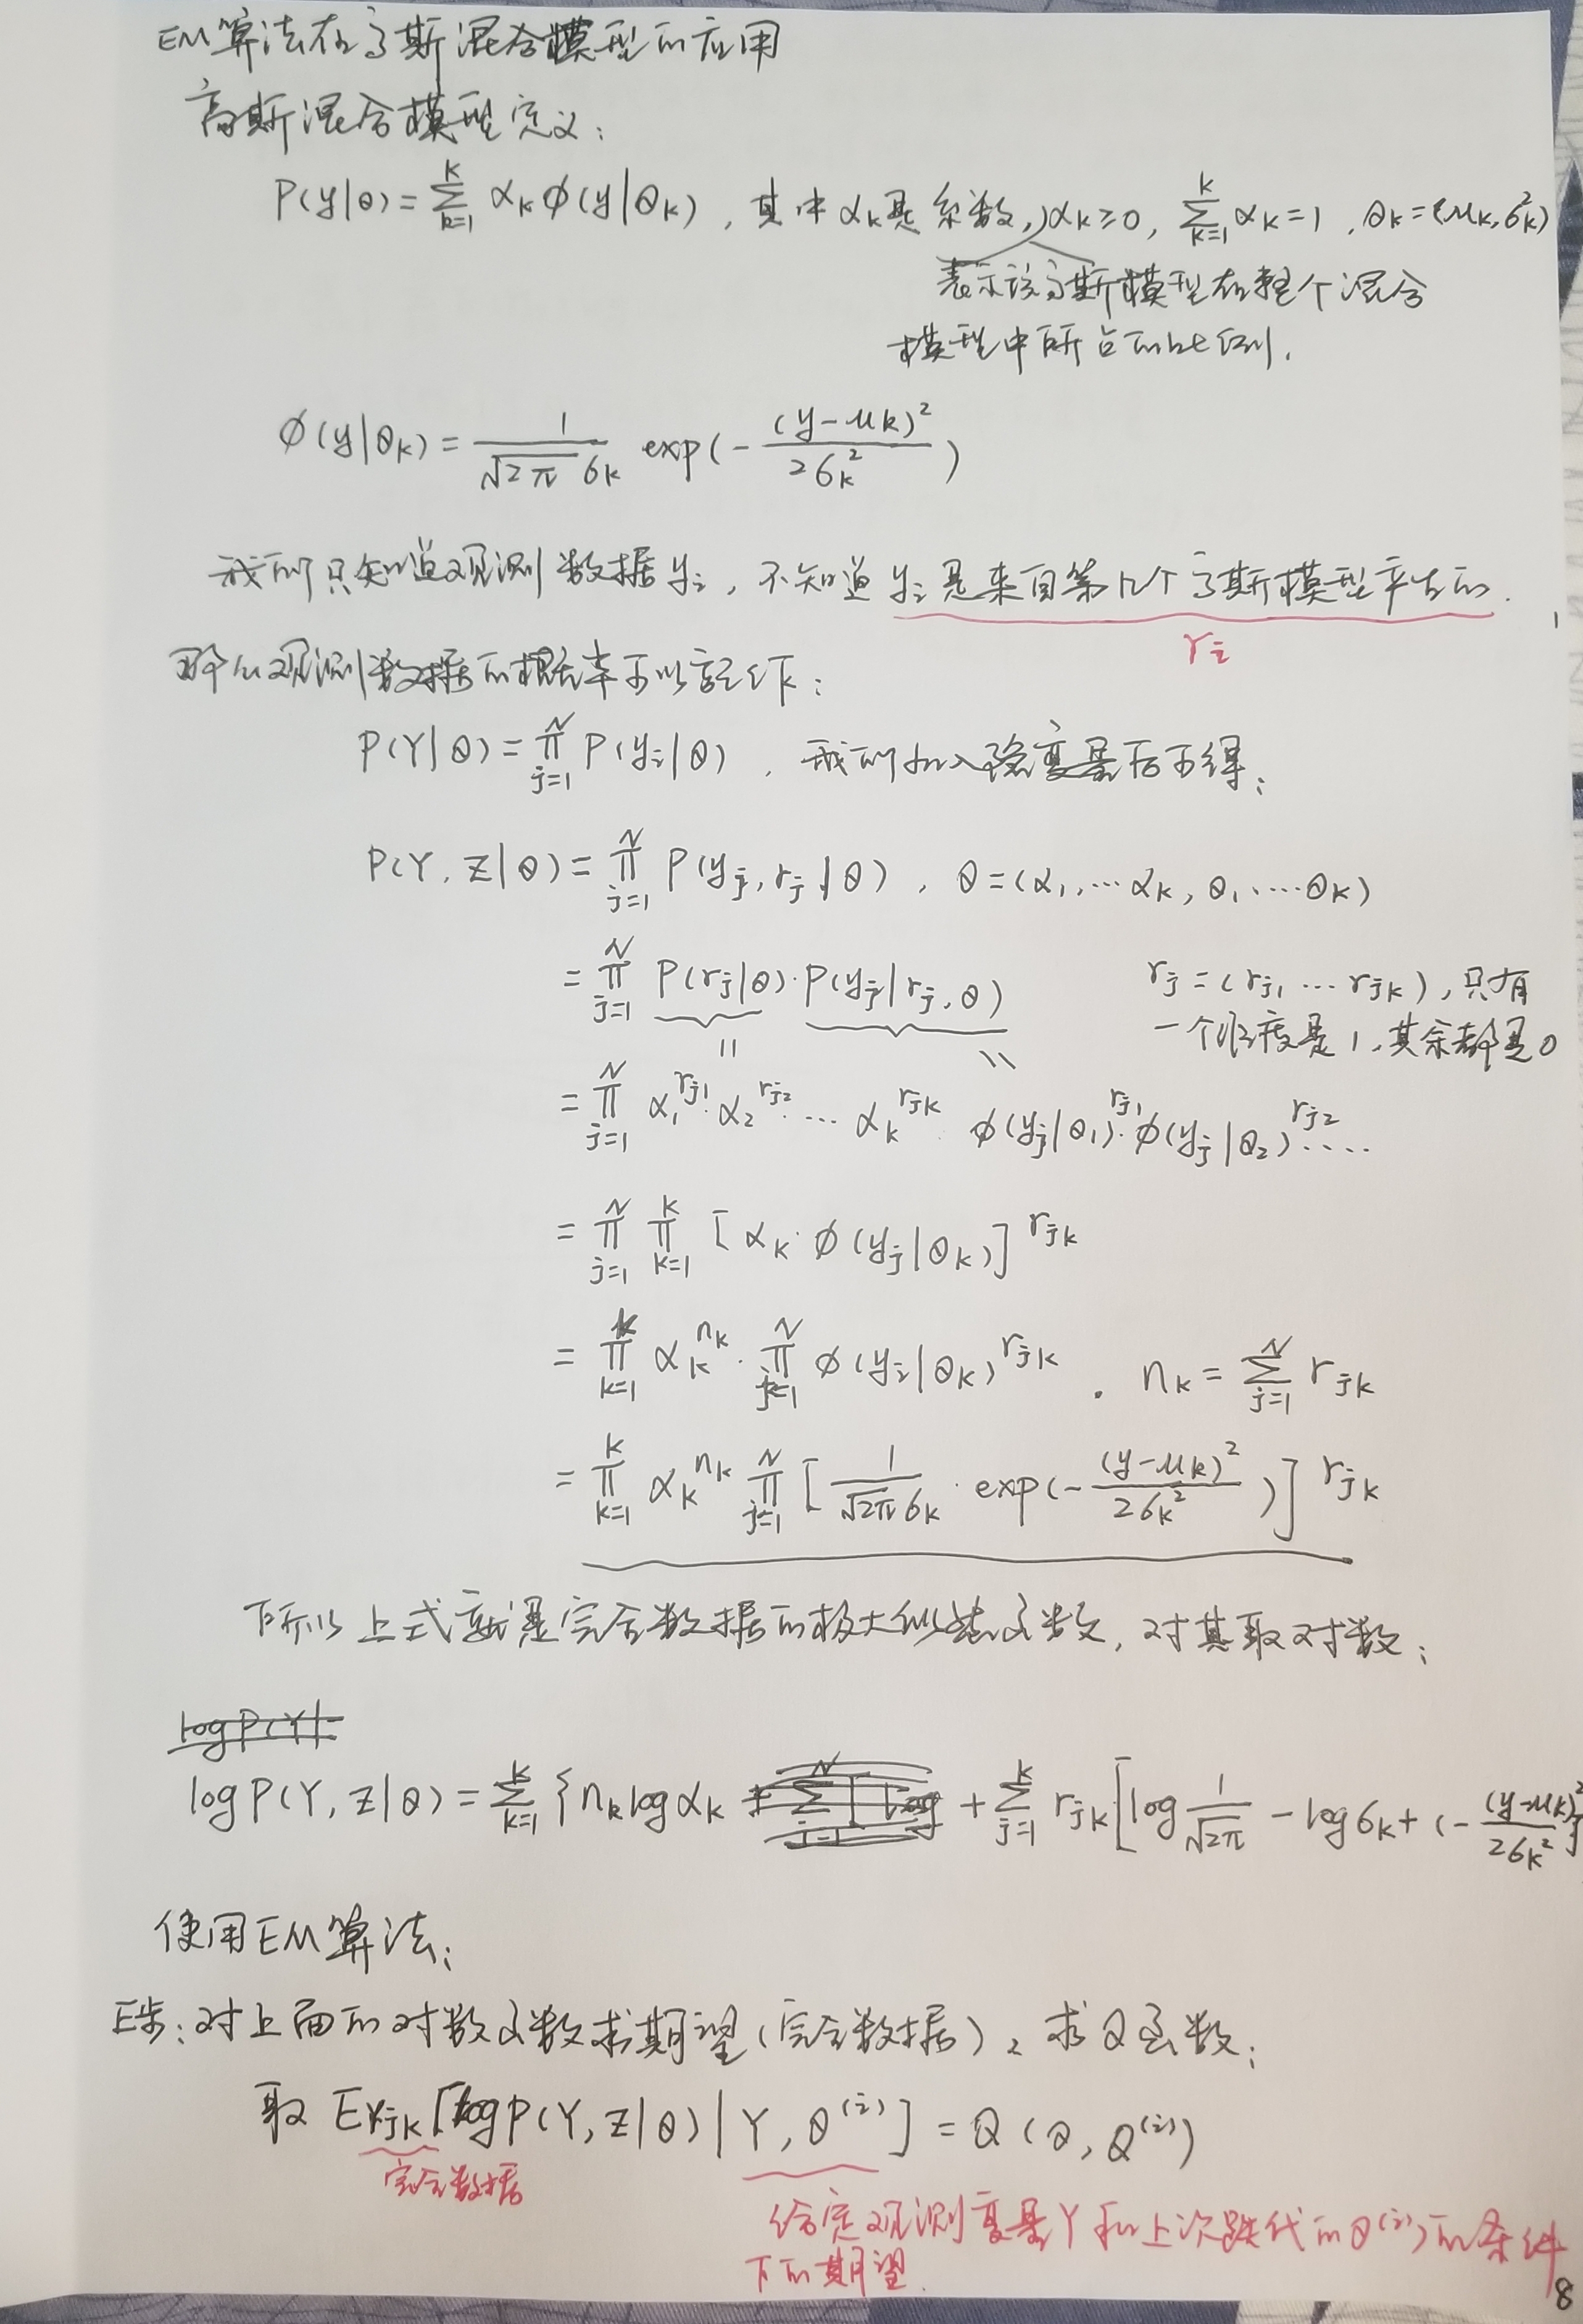 EM算法在高斯混合模型的应用
高斯混合模型定义:
P(y|θ) = ∑_{k=1}^{K} α_k φ(y|θ_k), 其中α_k是系数, α_k ≥ 0, ∑_{k=1}^{K} α_k = 1, θ_k = (μ_k, σ_k^2)
表示该高斯模型在整个混合
模型中所占的比例.
φ(y|θ_k) = \frac{1}{\sqrt{2π} σ_k} exp(-\frac{(y-μ_k)^2}{2σ_k^2})
我们只知道观测数据y_i, 不知道y_i是来自第几个高斯模型产生的.
r_i
那么观测数据的概率可以记作下:
P(Y|θ) = ∏_{j=1}^{N} P(y_i|θ), 我们加入隐变量后可得:
P(Y, Z|θ) = ∏_{j=1}^{N} P(y_j, r_j|θ), θ = (α_1, … α_k, θ_1, … θ_k)
= ∏_{j=1}^{N} P(r_j|θ)·P(y_j|r_j, θ) r_j = (r_{j1} … r_{jk}), 只有
一个维度是1, 其余都是0
= ∏_{j=1}^{N} α_1^{r_{j1}}·α_2^{r_{j2}} … α_k^{r_{jk}} φ(y_j|θ_1)^{r_{j1}}·φ(y_j|θ_2)^{r_{j2}} ….
= ∏_{j=1}^{N} ∏_{k=1}^{K} [α_k·φ(y_j|θ_k)]^{r_{jk}}
= ∏_{k=1}^{K} α_k^{n_k}·∏_{j=1}^{N} φ(y_i|θ_k)^{r_{jk}}. n_k = ∑_{j=1}^{N} r_{jk}
= ∏_{k=1}^{K} α_k^{n_k} ∏_{j=1}^{N} [\frac{1}{\sqrt{2π} σ_k}·exp(-\frac{(y-μ_k)^2}{2σ_k^2})]^{r_{jk}}
所以上式就是完全数据的极大似然函数, 对其取对数:
log P(Y|
log P(Y, Z|θ) = ∑_{k=1}^{K} {n_k log α_k + ∑_{j=1}^{k} r_{jk} [log \frac{1}{\sqrt{2π}} - log σ_k + (-\frac{(y-μ_k)^2}{2σ_k^2}]
使用EM算法:
E步: 对上面的对数函数求期望(完全数据), 求Q函数:
取 E_{r_{jk}} [log P(Y, Z|θ) | Y, θ^{(i)}] = Q(θ, θ^{(i)})
完全数据
给定观测变量Y和上次迭代的θ^{(i)}的条件
下的期望.
8